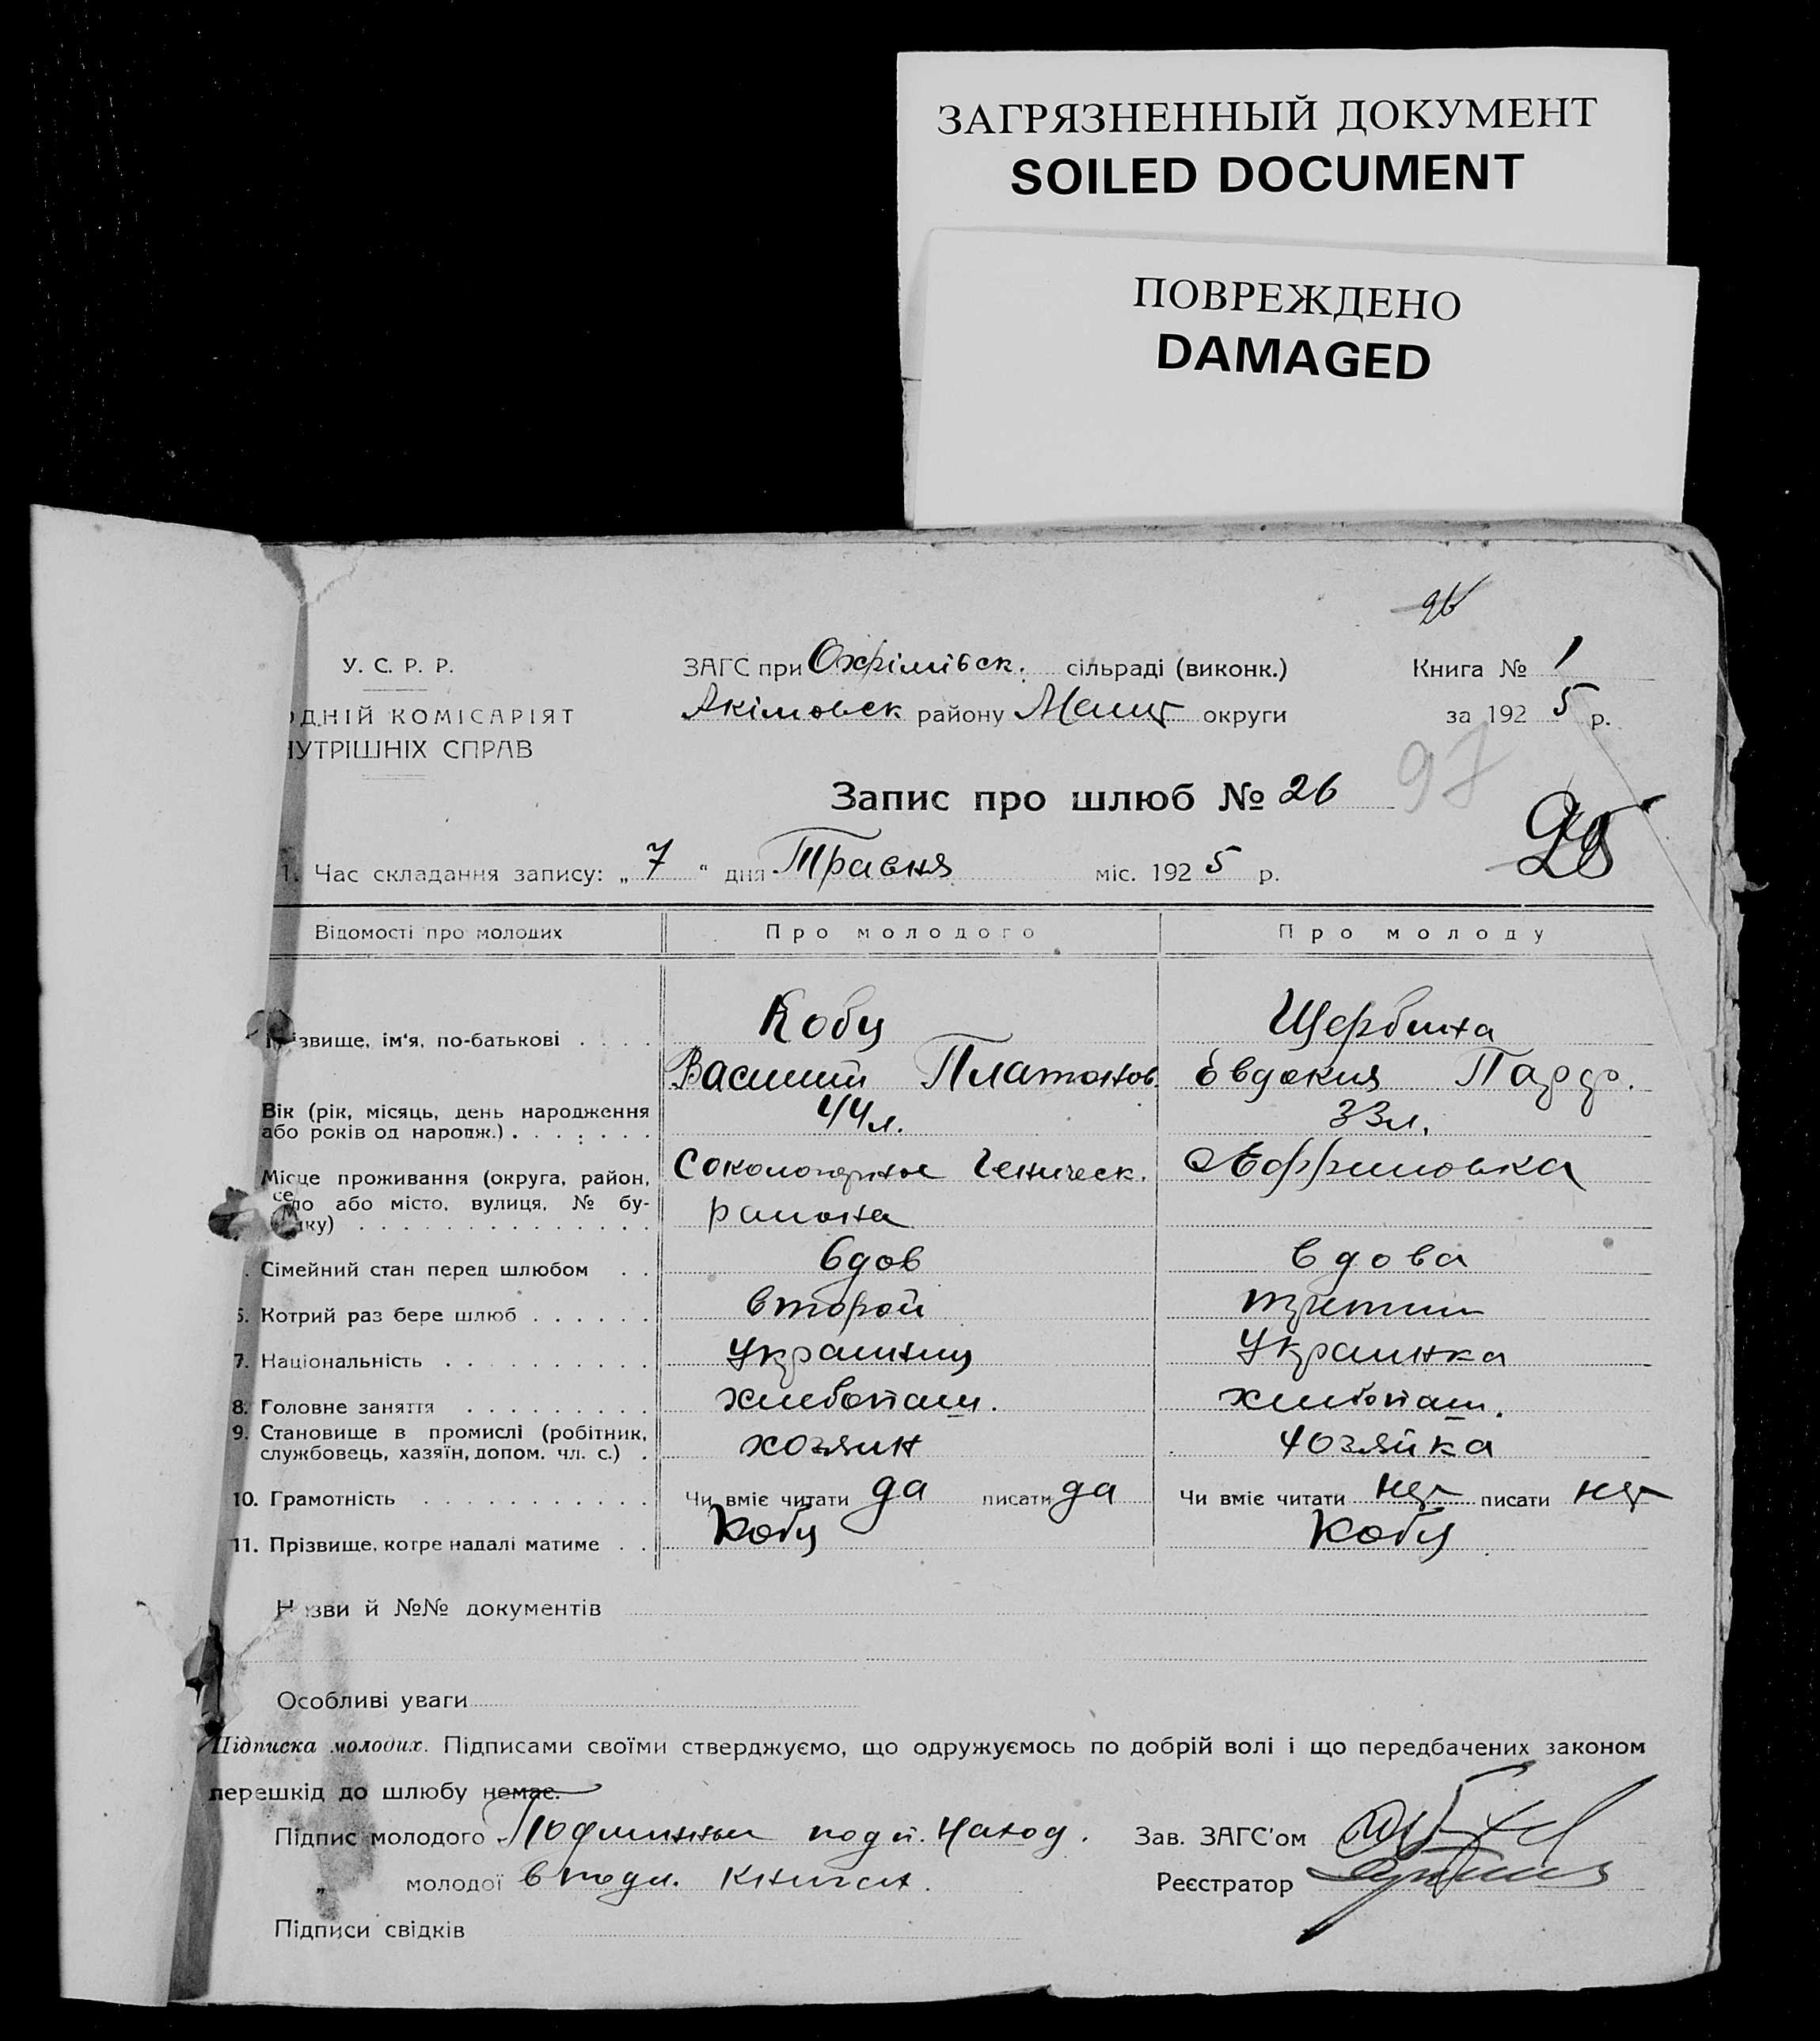 ЗАГРЯЗНЕННЫЙ ДОКУМЕНТ
SOILED DOCUMENT
ПОВРЕЖДЕНО
DAMAGED
У. С. Р. Р.
ОДНІЙ КОМІСАРІЯТ
НУТРІШНІХ СПРАВ
ЗАГС при Охрімівск. сільраді (виконк.)
Акімовск району Меліт округи
Книга № 1
за 1925 р.
97
Запис про шлюб № 26
1. Час складання запису: „ 7 “ дня Травня міс. 1925 р.
Відомості про молодих Про молодого Про молоду
Прізвище, ім'я, по-батькові . . . . Кобц Щербина
Василий Платонов. Евдокия
Вік (рік, місяць, день народження або років од народж.) . . . . . . . 44 л. 33 л.
Місце проживання (округа, район, село або місто, вулиця, № будинку) . . . . . . . . . . . . . . Геническ. района
. Сімейний стан перед шлюбом . . вдов вдова
6. Котрий раз бере шлюб . . . . . . второй третий
7. Національність . . . . . . . . . . Украинец Украинка
8. Головне заняття . . . . . . . . . хлебопаш. хлебопаш.
9. Становище в промислі (робітник, службовець, хазяїн, допом. чл. с.) . хозяин хозяйка
10. Грамотність . . . . . . . . . . . Чи вміє читати да писати да Чи вміє читати нет писати нет
11. Прізвище, котре надалі матиме . . Кобц Кобц
Назви й №№ документів
Особливі уваги
Підписка молодих. Підписами своїми стверджуємо, що одружуємось по добрій волі і що передбачених законом
перешкід до шлюбу немає.
Підпис молодого Подлинный подп. наход. Зав. ЗАГС'ом
„ молодої в подл. книгах. Реєстратор
Підписи свідків